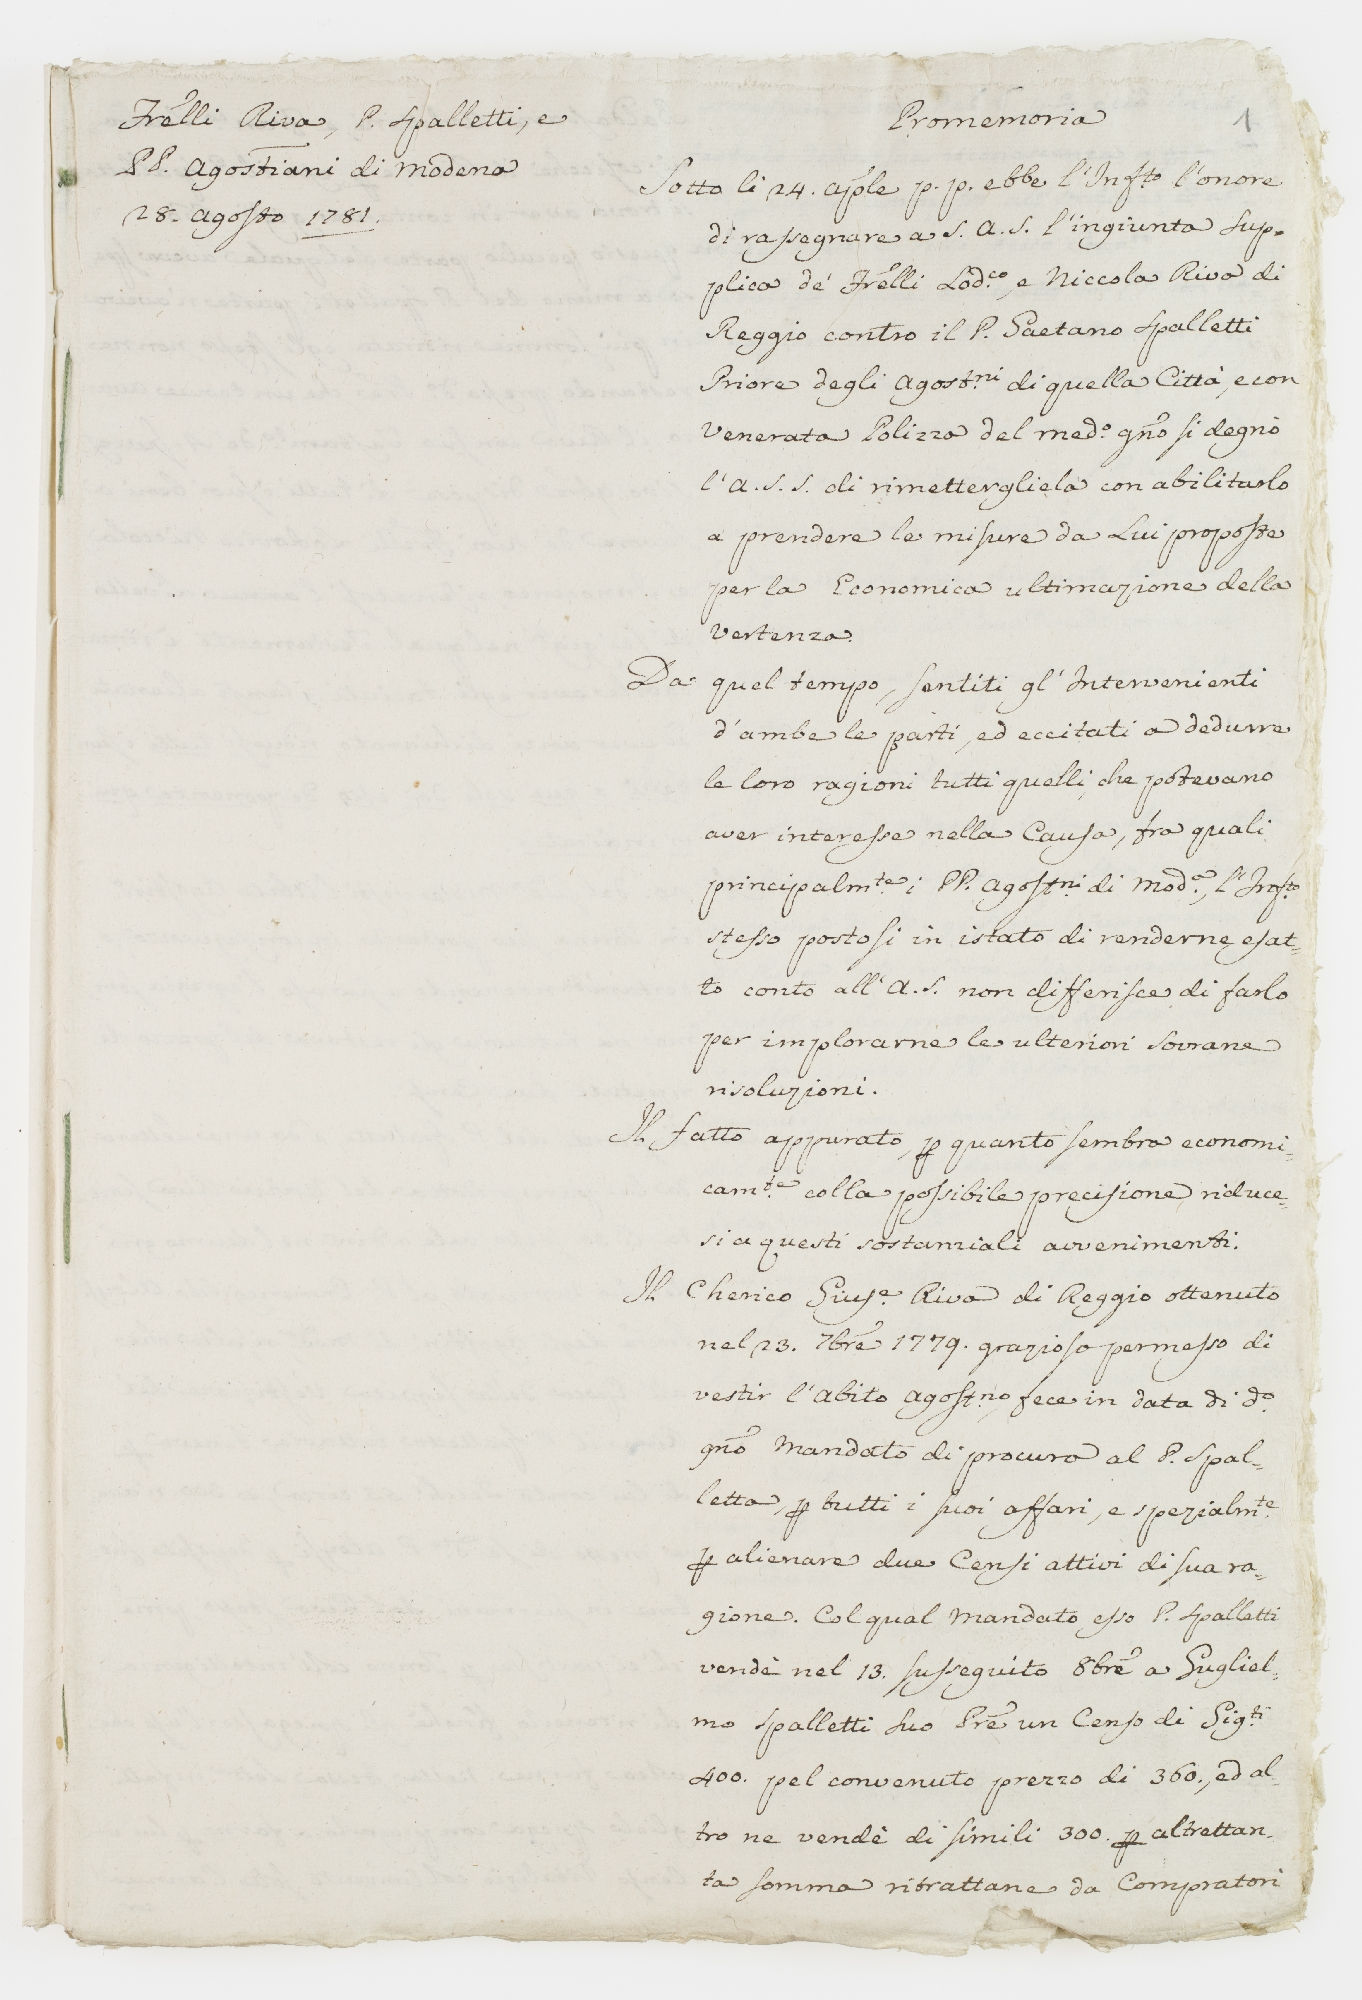 Frelli Riva, P. Spalletti, e
PP. Agostiani di Modena
28. Agosto 1781.
Promemoria
1
Sotto li 24. Aple p. p. ebbe l'Infto l'onore
di rassegnare a S. A. S. l'ingiunta sup-
plica de' Frelli Lod.co, e Niccola Riva di
Reggio contro il P. Gaetano Spalletti
Priore degli Agost.ni di quella Città, e con
Venerata Polizza del med.o gno si degnò
l'A. S. S. di rimettergliela con abilitarlo
a prendere le misure da Lui proposte
per la Economica ultimazione della
Vertenza.
Da quel tempo, sentiti gl'Intervenienti
d'ambe le parti, ed eccitati a dedurre
le loro ragioni tutti quelli, che potevano
aver interesse nella Causa, fra quali
principalm.te i PP. Agost.ni di Mod.a, l'Infto
stesso postosi in istato di renderne esat-
to conto all'A. S. non differisce di farlo
per implorarne le ulteriori Sovrane
risoluzioni.
Il fatto appurato, p quanto sembra economi-
cam.te colla possibile precisione, riduce-
si a questi sostanziali avvenimenti.
Il Cherico Gius.e Riva di Reggio ottenuto
nel 23. 7bre 1779. grazioso permesso di
vestir l'abito Agost.no, fece in data di d.o
gno Mandato di procura al P. Spal-
letta, p tutti i suoi affari, e spezialm.te
p alienare due Censi attivi di sua ra-
gione. Col qual Mandato esso P. Spalletti
vendè nel 13. susseguito 8bre a Gugliel-
mo Spalletti suo Pre un Censo di Gig.ti
400. pel convenuto prezzo di 360., ed al-
tro ne vendè di simili 300. p altrettan-
ta somma ritrattane da Compratori